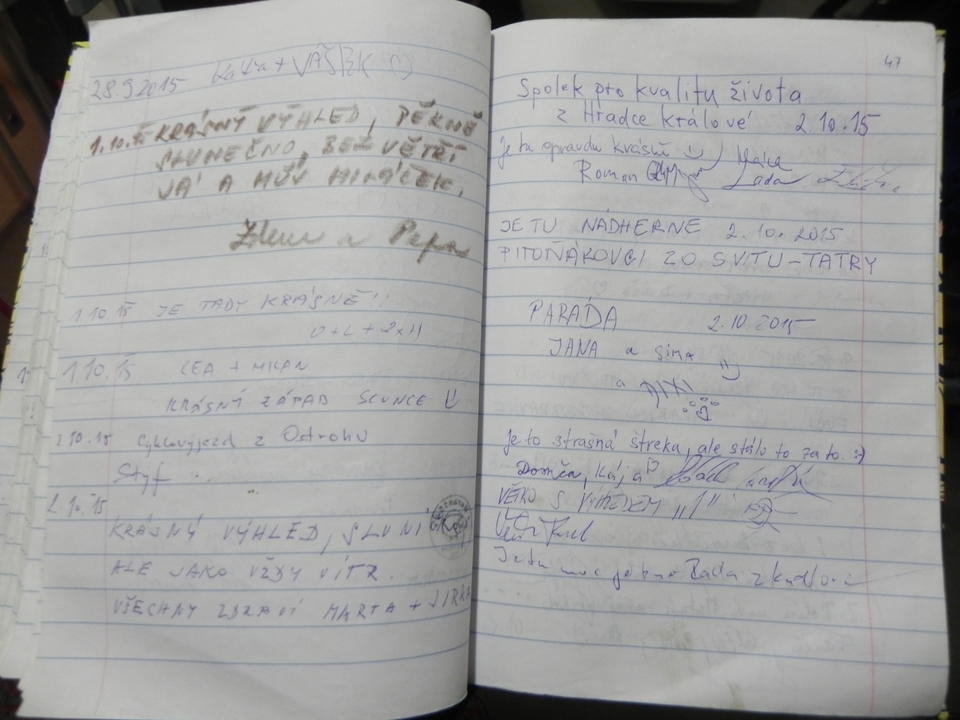 28.9.2015 Katka + VAŠEK
1.10.15 KRÁSNÝ VÝHLED, PĚKNĚ
SLUNEČNO, BEZ VĚTŘÍ
JÁ A MŮJ MILÁČEK.
Zdena a Pepa
1.10 15 JE TADY KRÁSNĚ!!
O + L + 2xH
1.10.15 LEA + MILAN
KRÁSNÝ ZÁPAD SLUNCE
2.10.15 Cyklovýjezd z Odrohu
Styf
2.10.15
KRÁSNÝ VÝHLED, SLUNÍ
ALE JAKO VŽDY VÍTR.
VŠECHNY ZDRAVÍ MARTA + JIRKA
47
Spolek pro kvalitu života
z Hradce králové 2.10.15
je tu opravdu krásně :)
Roman Laďa
JE TU NÁDHERNE 2.10.2015
PITOŇÁKOVCI ZO SVITU-TATRY
PARÁDA 2.10 2015
JANA a SIMA :)
a
je to strašná štreka, ale stálo to za to. :)
Domča, Kája
VĚTRO S VÝHLEDEM
Jede moc pěkně Rada z